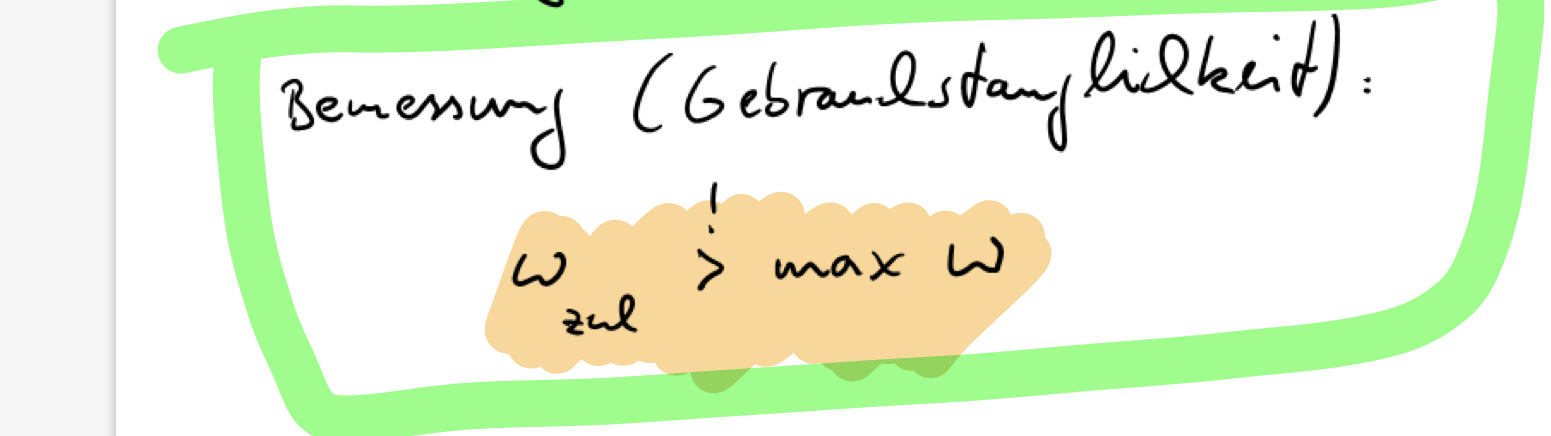 Bemessung (Gebrauchstauglichkeit):
!
w zul > max w